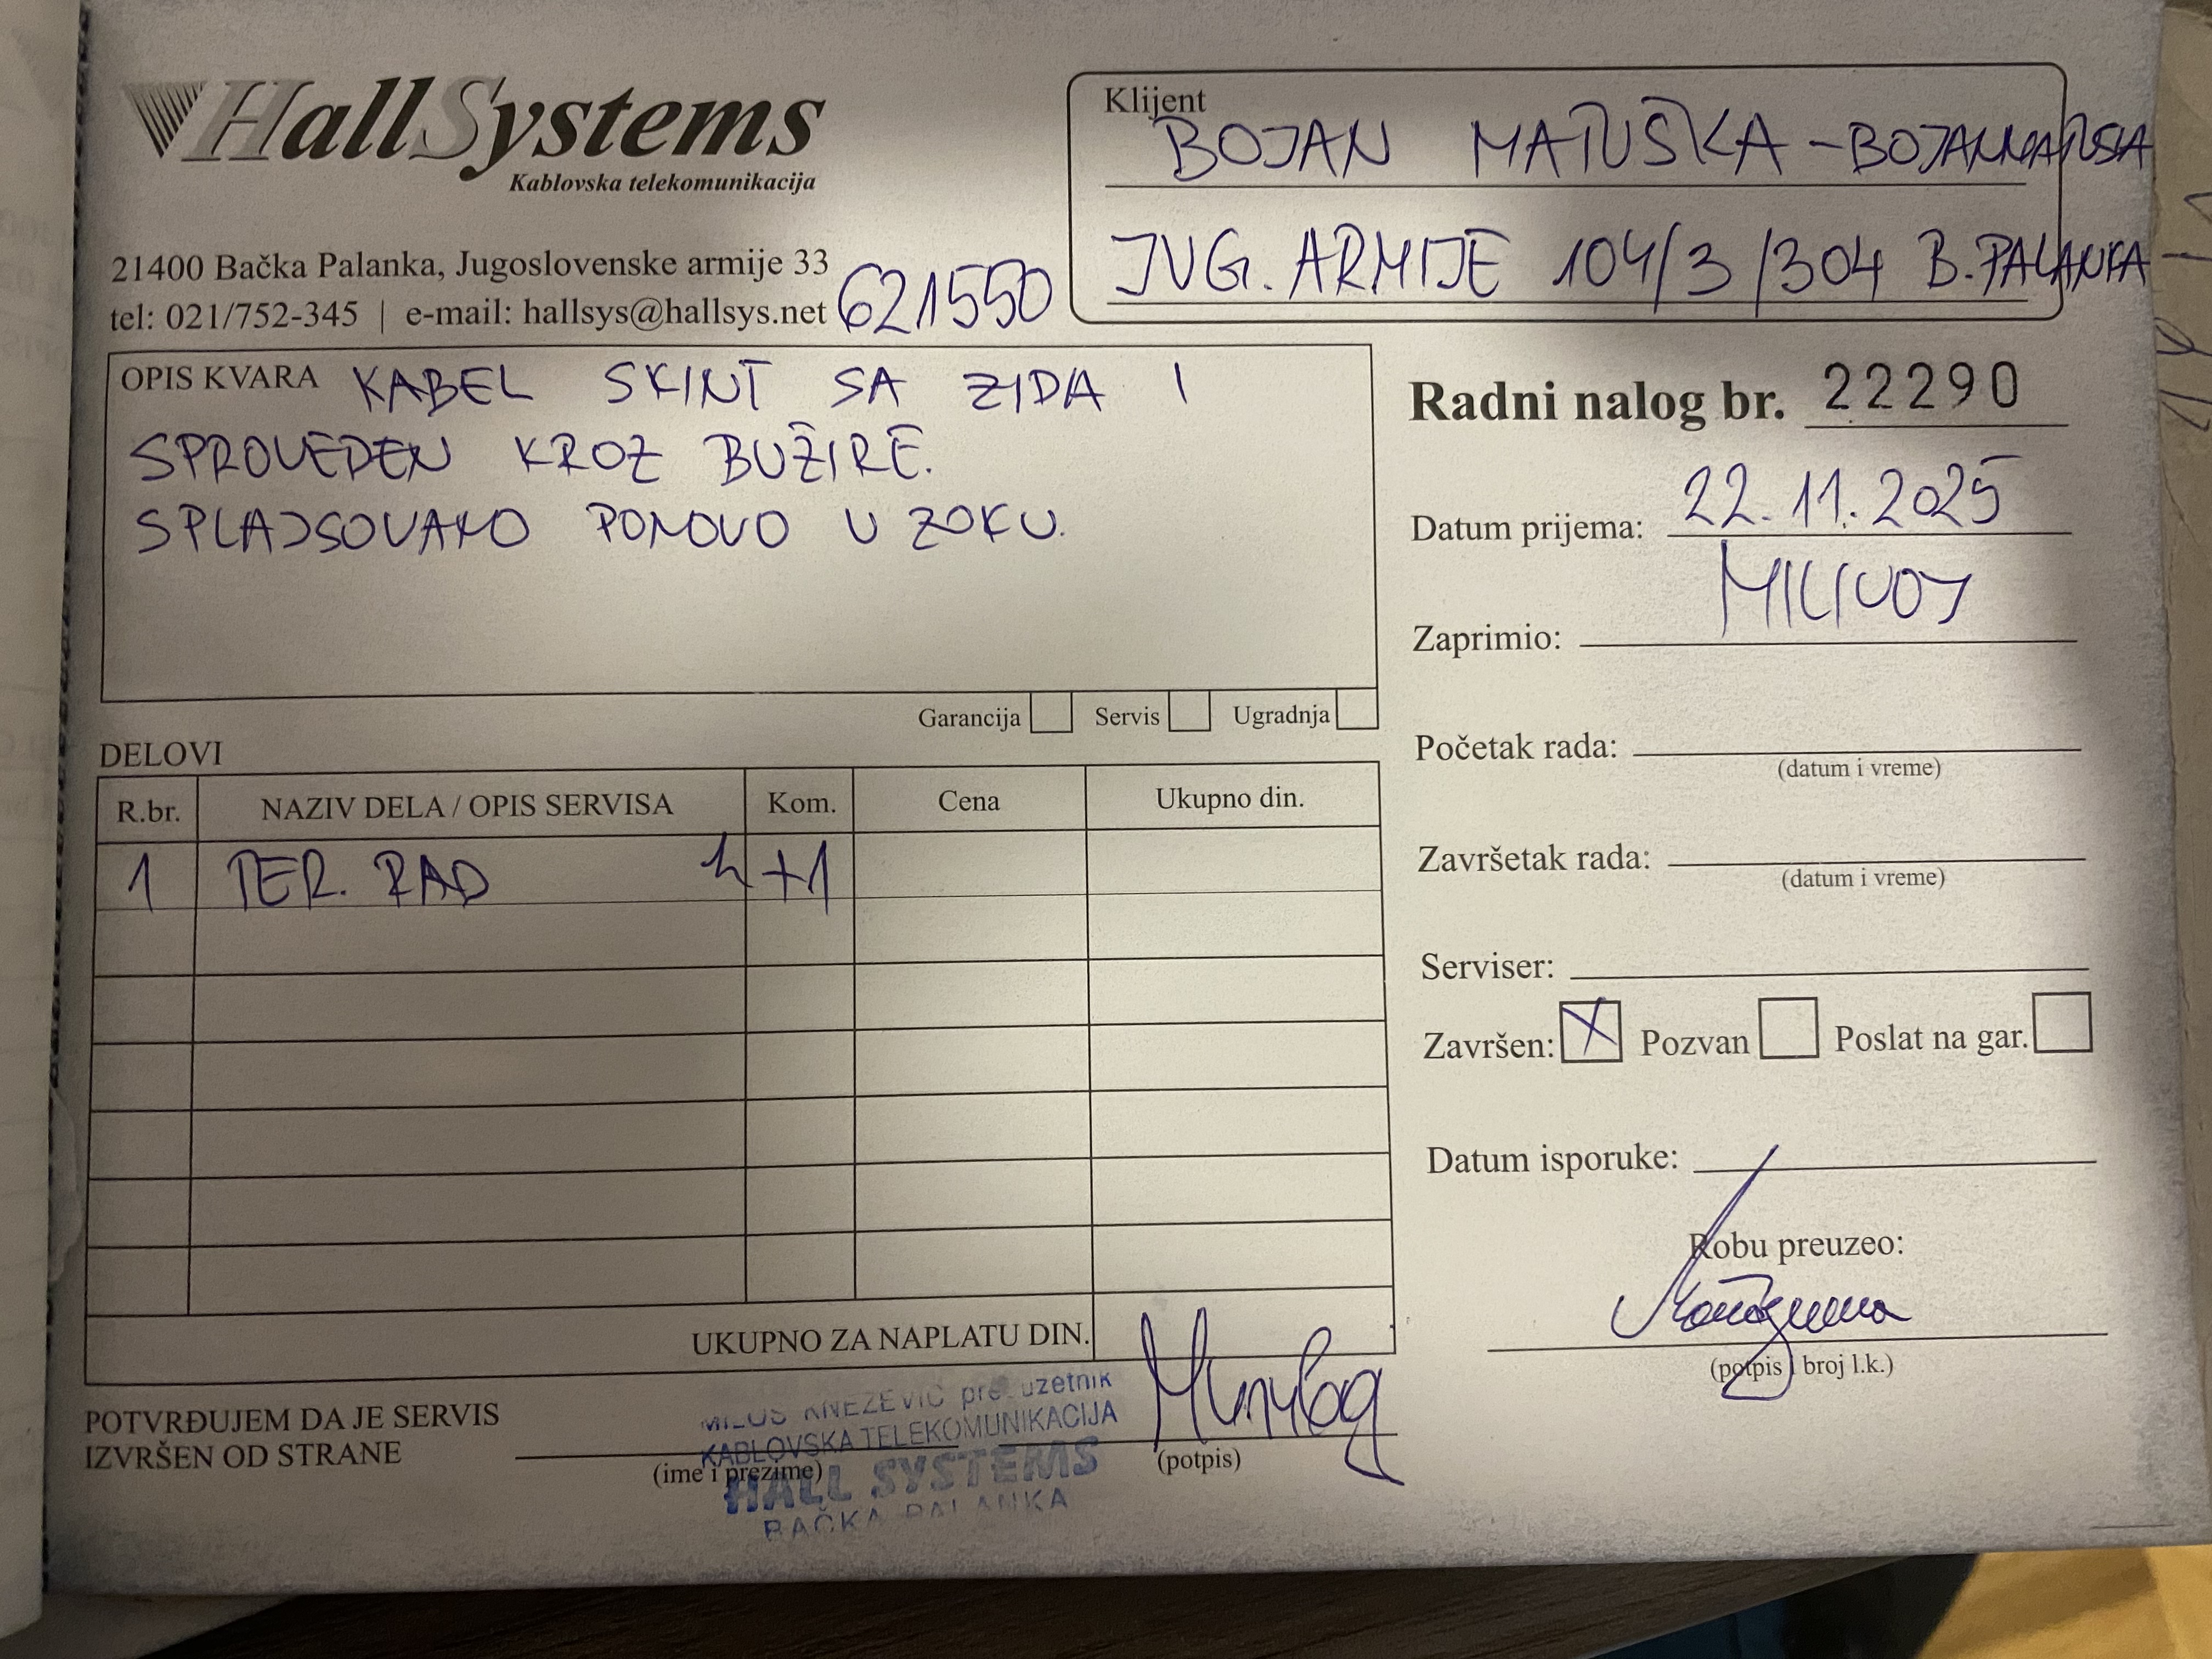 HallSystems
Kablovska telekomunikacija
21400 Bačka Palanka, Jugoslovenske armije 33
tel: 021/752-345 | e-mail: hallsys@hallsys.net
621550
Klijent
BOJAN MATUŠKA - BOJANMATUSKA
JUG. ARMIJE 104/3/304 B. PALANKA
OPIS KVARA KABEL SKINT SA ZIDA I
SPROVEDEN KROZ BUŽIRE.
SPLAJSOVANO PONOVO U ZOKU.
Garancija Servis Ugradnja
Radni nalog br. 22290
Datum prijema: 22.11.2025
Zaprimio: MILIVOJ
Početak rada:
(datum i vreme)
Završetak rada:
(datum i vreme)
Serviser:
Završen: X Pozvan Poslat na gar.
Datum isporuke:
Robu preuzeo:
(potpis i broj l.k.)
DELOVI
R.br. NAZIV DELA / OPIS SERVISA Kom. Cena Ukupno din.
1 TER. RAD h +1
UKUPNO ZA NAPLATU DIN.
POTVRĐUJEM DA JE SERVIS
IZVRŠEN OD STRANE
(ime i prezime)
(potpis)
MILOŠ KNEŽEVIĆ preduzetnik
KABLOVSKA TELEKOMUNIKACIJA
HALL SYSTEMS
BAČKA PALANKA